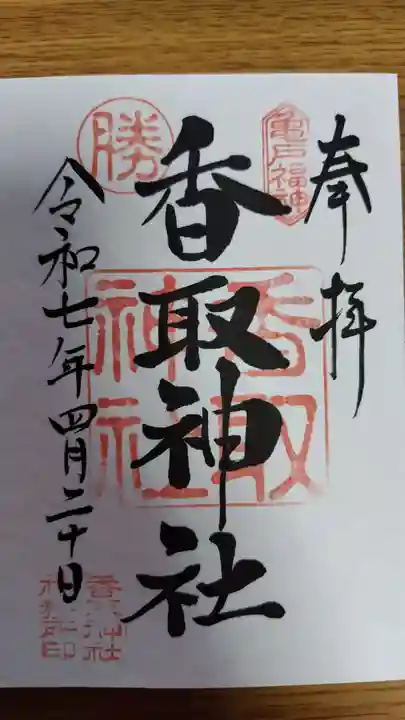 奉拝
亀戸福神
香取神社
香取神社
勝
令和七年四月二十日
香取神社